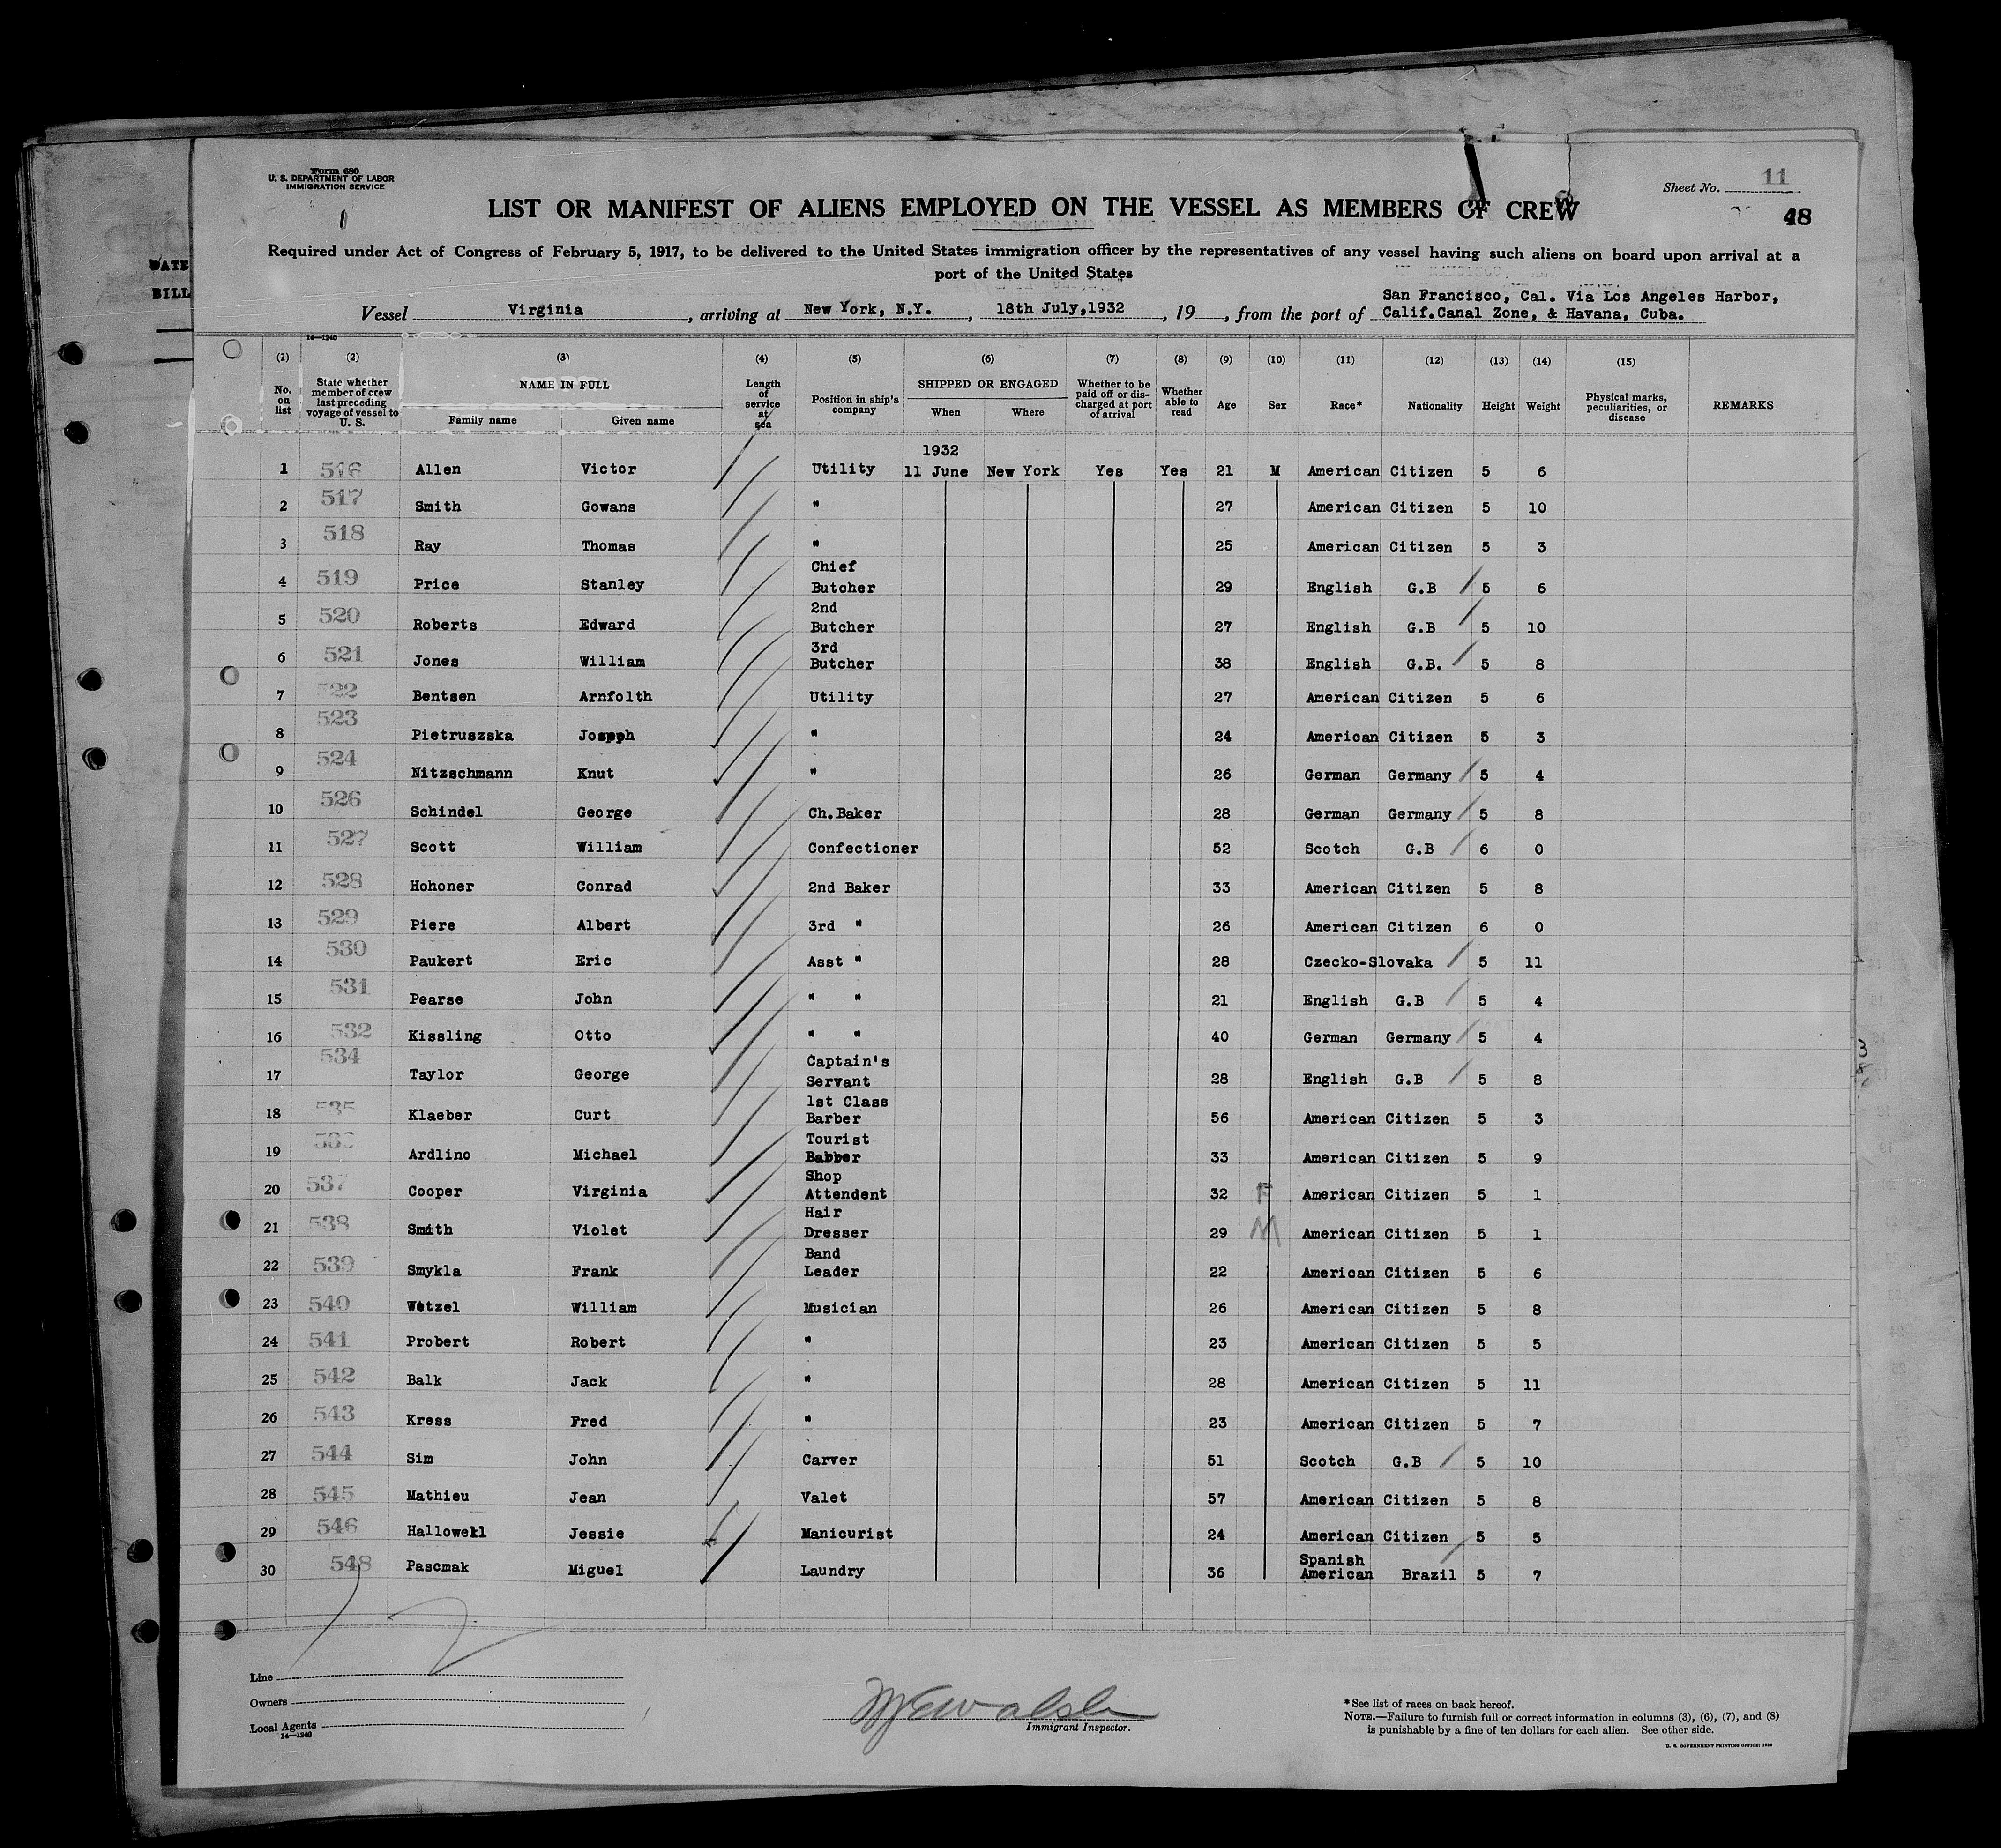 Form 680
U. S. DEPARTMENT OF LABOR
IMMIGRATION SERVICE
Sheet No. 11
48
LIST OR MANIFEST OF ALIENS EMPLOYED ON THE VESSEL AS MEMBERS OF CREW
Required under Act of Congress of February 5, 1917, to be delivered to the United States immigration officer by the representatives of any vessel having such aliens on board upon arrival at a
port of the United States
San Francisco, Cal. Via Los Angeles Harbor,
Vessel Virginia, arriving at New York, N.Y., 18th July,1932, 19, from the port of Calif.Canal Zone, & Havana, Cuba.
14—1240
(1) (2) (3) (4) (5) (6) (7) (8) (9) (10) (11) (12) (13) (14) (15)
No. on list State whether member of crew last preceding voyage of vessel to U. S. NAME IN FULL Family name Given name Length of service at sea Position in ship's company SHIPPED OR ENGAGED When Where Whether to be paid off or discharged at port of arrival Whether able to read Age Sex Race* Nationality Height Weight Physical marks, peculiarities, or disease REMARKS
1932
1 516 Allen Victor Utility 11 June New York Yes Yes 21 M American Citizen 5 6
2 517 Smith Gowans " 27 American Citizen 5 10
3 518 Ray Thomas " 25 American Citizen 5 3
4 519 Price Stanley Chief Butcher 29 English G.B 5 6
5 520 Roberts Edward 2nd Butcher 27 English G.B 5 10
6 521 Jones William 3rd Butcher 38 English G.B. 5 8
7 522 Bentsen Arnfolth Utility 27 American Citizen 5 6
8 523 Pietruszska Jospph " 24 American Citizen 5 3
9 524 Nitzschmann Knut " 26 German Germany 5 4
10 526 Schindel George Ch.Baker 28 German Germany 5 8
11 527 Scott William Confectioner 52 Scotch G.B 6 0
12 528 Hohoner Conrad 2nd Baker 33 American Citizen 5 8
13 529 Piere Albert 3rd " 26 American Citizen 6 0
14 530 Paukert Eric Asst " 28 Czecko-Slovaka 5 11
15 531 Pearse John " " 21 English G.B 5 4
16 532 Kissling Otto " " 40 German Germany 5 4
17 534 Taylor George Captain's Servant 28 English G.B 5 8
18 535 Klaeber Curt 1st Class Barber 56 American Citizen 5 3
19 Ardlino Michael Tourist Babber 33 American Citizen 5 9
20 537 Cooper Virginia Shop Attendent 32 F American Citizen 5 1
21 538 Smith Violet Hair Dresser 29 M American Citizen 5 1
22 539 Smykla Frank Band Leader 22 American Citizen 5 6
23 540 Wetzel William Musician 26 American Citizen 5 8
24 541 Probert Robert " 23 American Citizen 5 5
25 542 Balk Jack " 28 American Citizen 5 11
26 543 Kress Fred " 23 American Citizen 5 7
27 544 Sim John Carver 51 Scotch G.B 5 10
28 545 Mathieu Jean Valet 57 American Citizen 5 8
29 546 Hallowell Jessie Manicurist 24 American Citizen 5 5
30 548 Pascmak Miguel Laundry 36 Spanish American Brazil 5 7
Line
Owners
Local Agents
14—1240
Immigrant Inspector.
*See list of races on back hereof.
NOTE.—Failure to furnish full or correct information in columns (3), (6), (7), and (8)
is punishable by a fine of ten dollars for each alien. See other side.
U. S. GOVERNMENT PRINTING OFFICE:
DATE
BILL